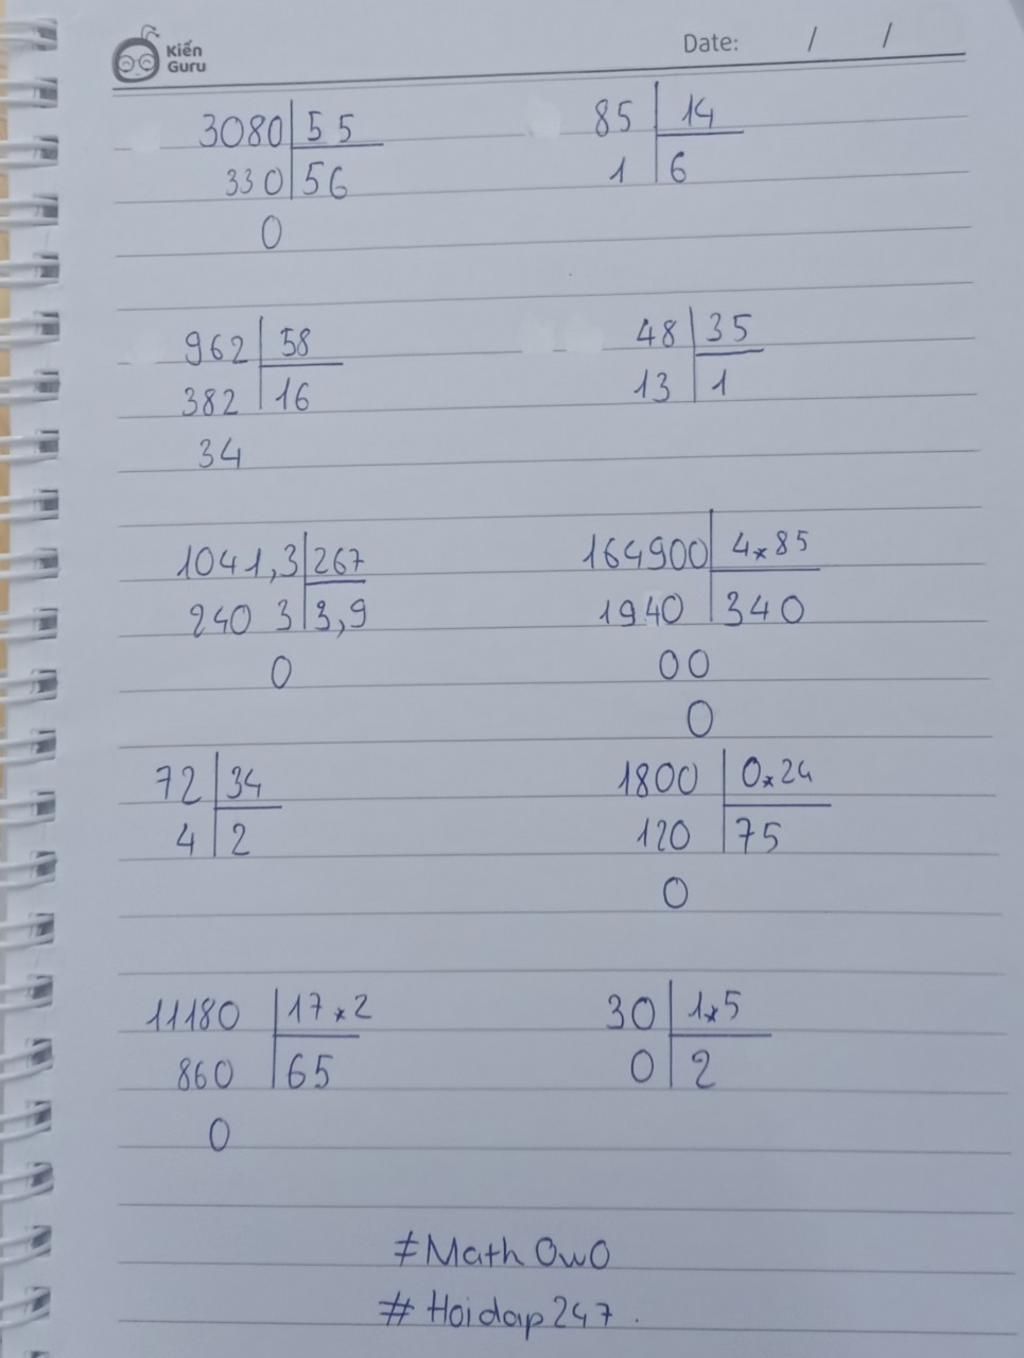 Kiến
Guru
Date: / /
3080 55
330 56
0
85 14
1 6
962 58
382 16
34
48 35
13 1
1041,3 267
240 3 3,9
0
164900 4*85
1940 340
00
0
72 34
4 2
1800 0*24
120 75
0
11180 17*2
860 65
0
30 1*5
0 2
#Math OwO
#Hoidap247.